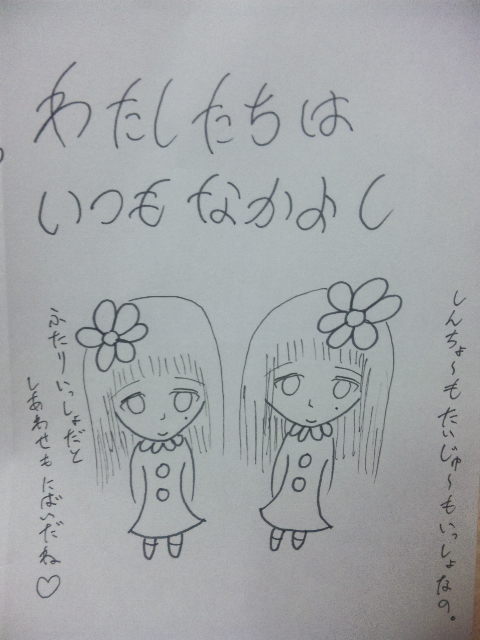 わたしたちは
いつもなかよし
しんちょ〜もたいじゅ〜もいっしょなの。
ふたりいっしょだと
しあわせもにばいだね♡